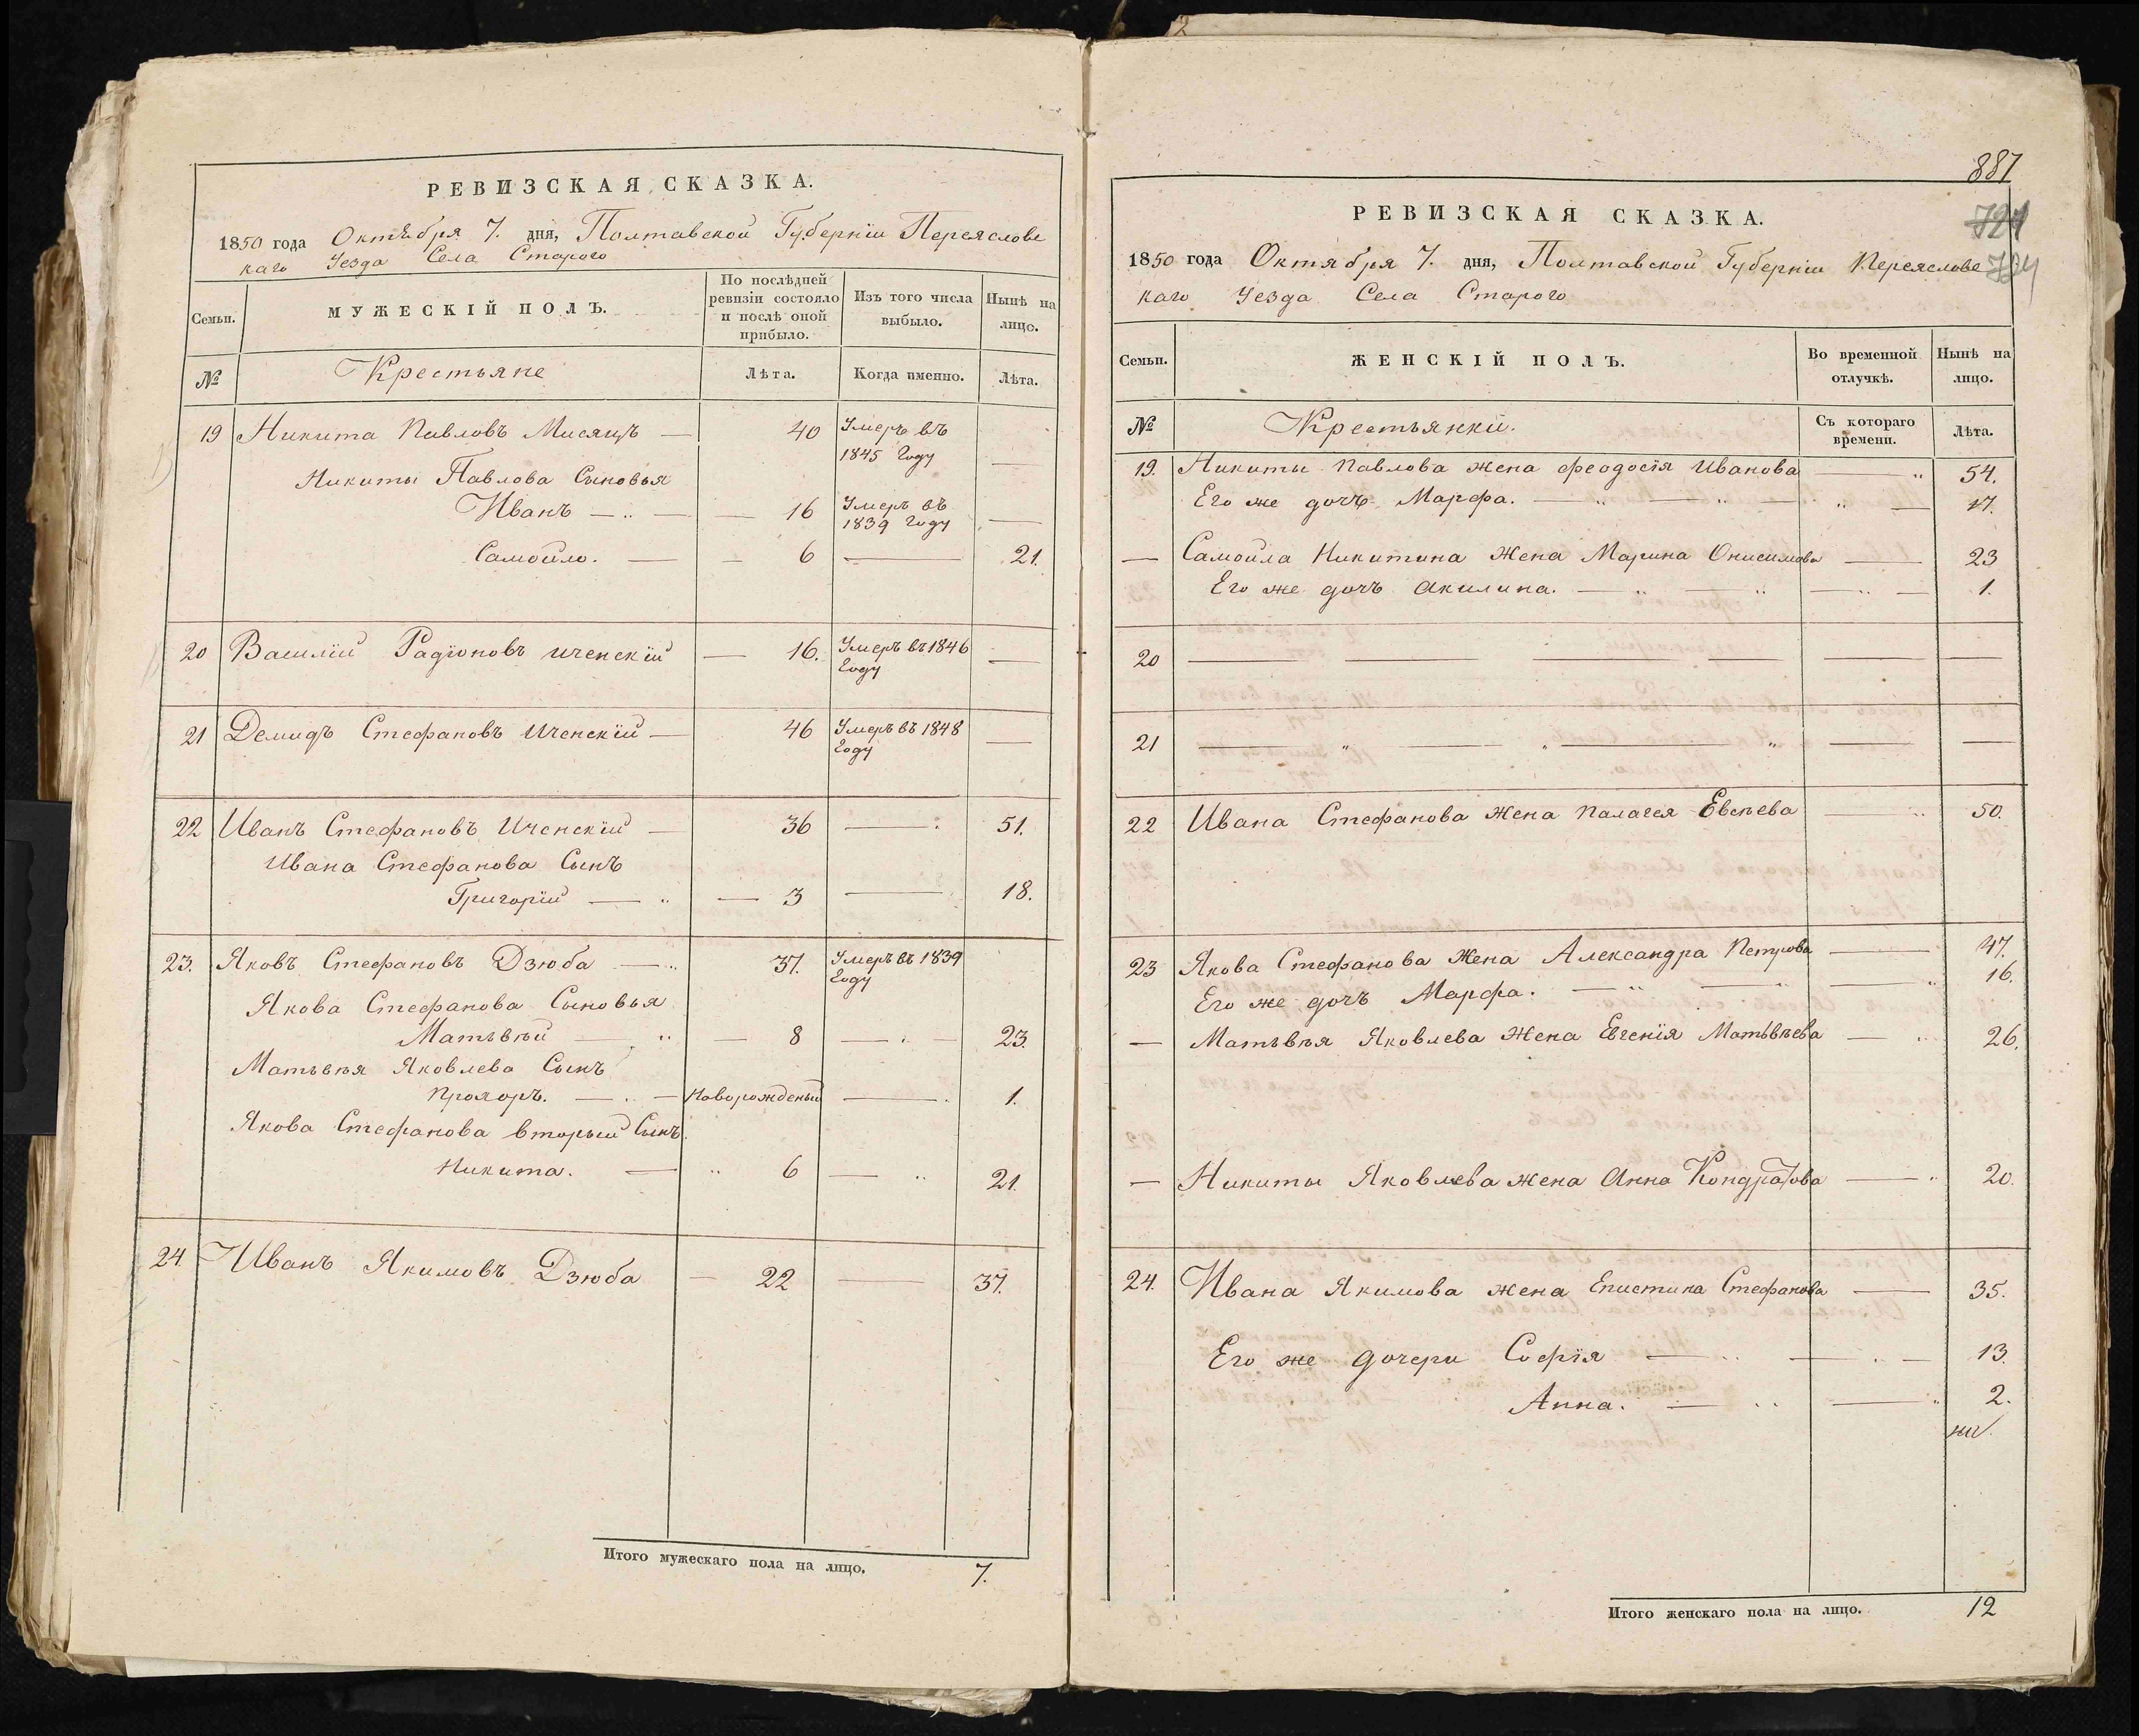 РЕВИЗСКАЯ СКАЗКА.
1850 года Октября 7. дня, Полтавской Губерніи Переяслове
каго Уезда Села Старого
Семьи.
МУЖЕСКІЙ ПОЛЪ.
По послѣдней ревизіи состояло и послѣ оной прибыло.
Изъ того числа выбыло.
Нынѣ на лицо.
№
Крестьяне
Лѣта.
Когда именно.
Лѣта.
19 Никита Павловъ Мисяцъ — 40 Умеръ въ 1845 Году —
Никиты Павлова Сыновья
Иванъ — — 16 Умеръ въ 1839 Году —
Самойло. — — 6 — 21.
20 Василій Радіоновъ Иченскій — 16. Умеръ въ 1846 Году —
21 Демидъ Стефановъ Иченскій — 46 Умеръ въ 1848 Году —
22 Иванъ Стефановъ Иченскій — 36 — 51.
Ивана Стефанова Сынъ
Григорій — — 3 — 18.
23. Яковъ Стефановъ Дзюба — 37. Умеръ въ 1839 Году
Якова Стефанова Сыновья
Матвѣй — — 8 — 23.
Матьвѣя Яковлева Сынъ
Прохоръ. — — Новорожденый — 1.
Якова Стефанова вторый Сынъ.
Никита. — 6 — 21.
24. Иванъ Якимовъ Дзюба — 22 — 37.
Итого мужескаго пола на лицо. 7.
887
724
724
РЕВИЗСКАЯ СКАЗКА.
1850 года Октября 7. дня, Полтавской Губерніи Переяслове
каго Уезда Села Старого
Семьи.
ЖЕНСКІЙ ПОЛЪ.
Во временной отлучкѣ.
Нынѣ на лицо.
№
Крестьянки.
Съ котораго времени.
Лѣта.
19. Никиты Павлова жена Феодосія Иванова — 54.
Его же дочь Марфа. — — — 17.
— Самойла Никитина Жена Марина Онисимова — 23
Его же дочь Акилина. — — — 1.
20 — — — — — —
21 — — — — —
22 Ивана Стефанова Жена Палагея Евсѣева — 50.
23 Якова Стефанова Жена Александра Петрова — 47.
Его же дочь Марфа. — — — 16.
— Матьвѣя Яковлева Жена Евгенія Матьвѣева — 26.
— Никиты Яковлева жена Анна Кондратова — 20.
24. Ивана Якимова жена Епистина Стефанова — 35.
Его же дочери Софія — — 13.
Анна. — — 2.
Итого женскаго пола на лицо. 12